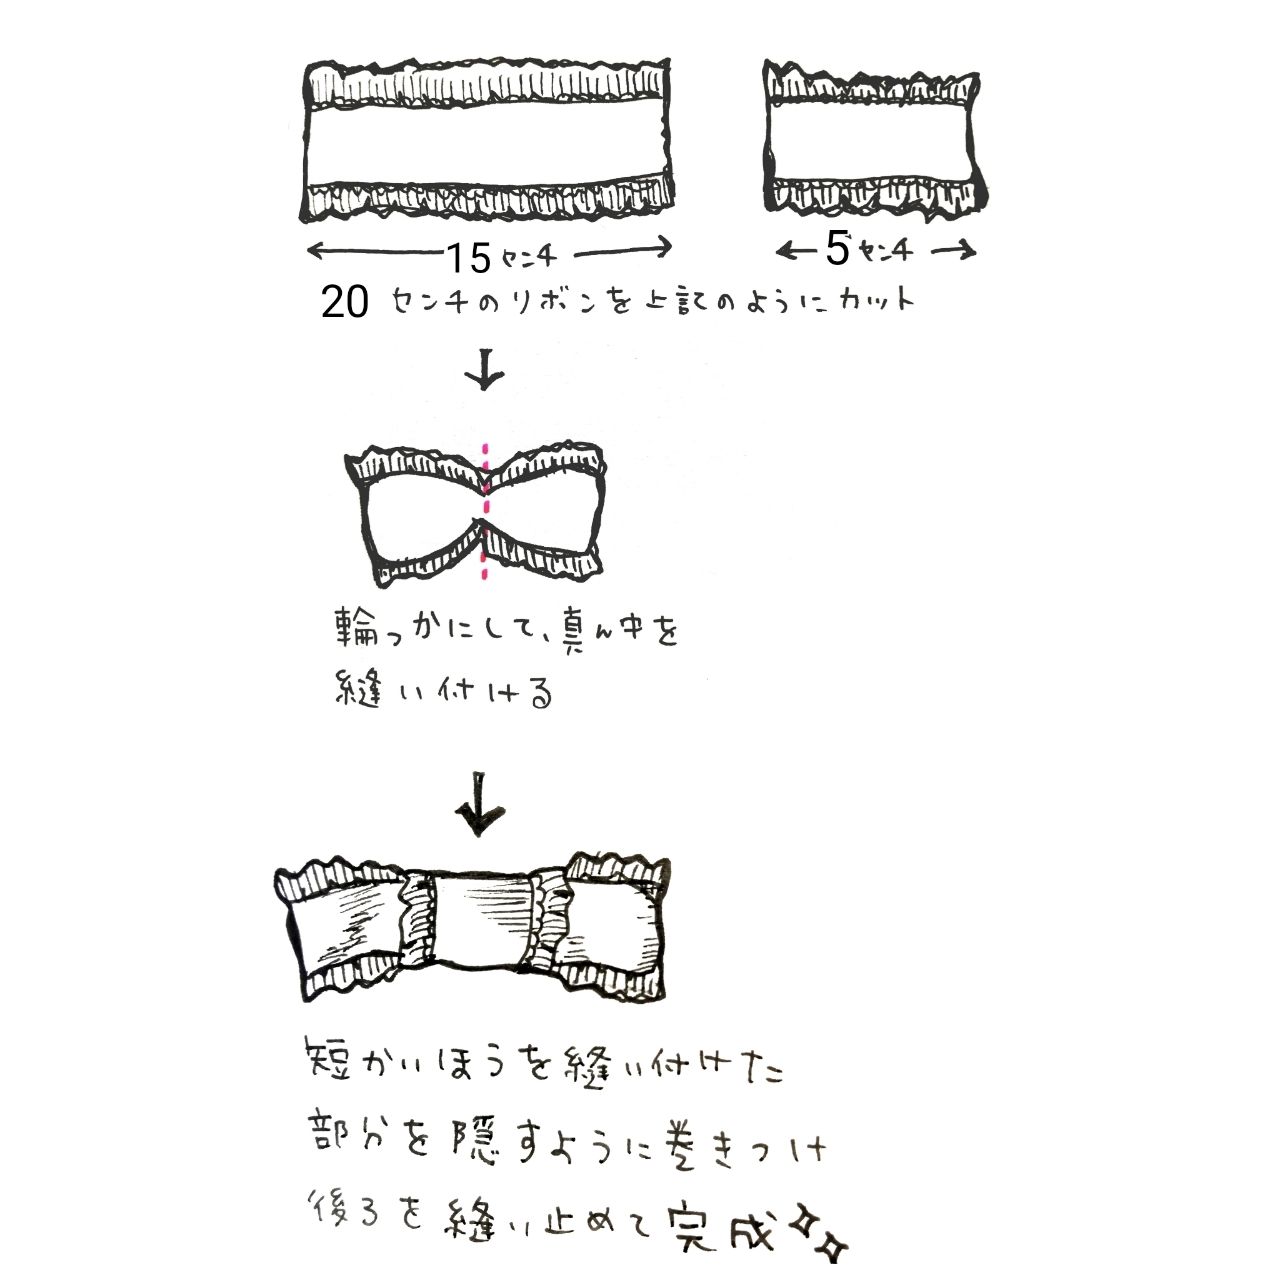 15 センチ
5 センチ
20 センチのリボンを上記のようにカット
輪っかにして、真ん中を
縫い付ける
短かいほうを縫い付けた
部分を隠すように巻きつけ
後ろを縫い止めて完成